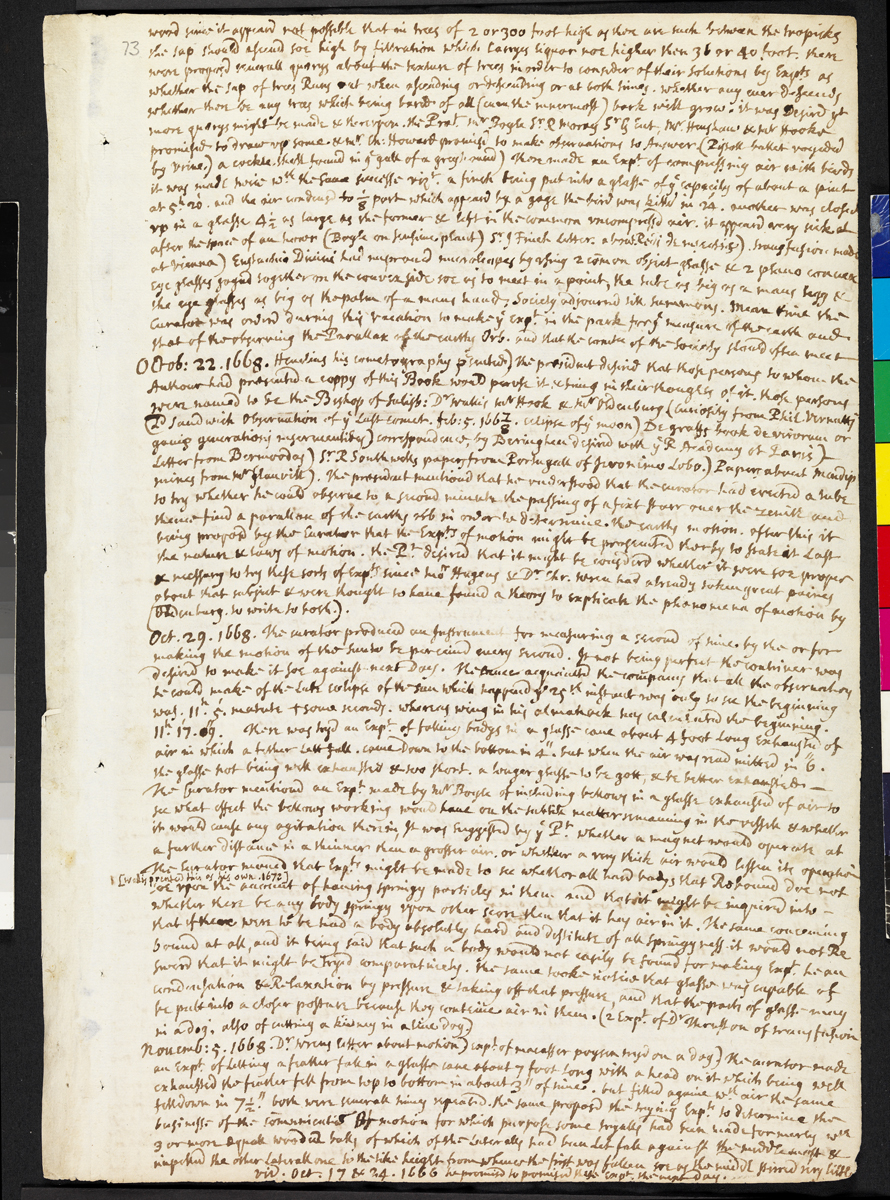 73
word since it appeard not possible that in trees of 2 or 300 foot high as there are such between the tropicks
the sap should ascend soe high by filtration which carrys liquor not higher then 36 or 40 foot. there
were propos'd severall querys about the texture of trees in order to consider of their solutions by Expts as
whether the sap of trees Runs out when ascending or descending or at both times. whether any ever descends
whether there be any tree which being bard of all (even the innermost) bark will grow. it was Desird yt
more querys might be made & therupon. the Prest. mr Boyle Sr R moray Sr G Ent, Mr. Henshaw & mr Hooke
promised to draw up some. & mr. Ch: Howard promisd to make observations to Answer (Pistoll bullet voyded
by Urine.) a cockle shell found in ye gall of a greyhound) There made an Expt of compressing air with birds
it was made twice wth the same successe vizt. a finch being put into a glasse of ye capacity of about a paint
at 5h 20'. and the air condensed to 1/8 part which appeard by a gage the bird was killd in 24. another was closed
up in a glasse 4 1/2 as large as the former & left in the common uncompressd air. it appeard very sick at
after the space of an hower (Boyle on sensine plant) Sr. J Finch letter. transfusion made
at vienna) Eustachio Divini had improvd microscopes by using 2 comon object-glasse & 2 plano convex
Eye glasses joynd together on the convex side soe as to meet in a point, the tube as big as a mans legg &
the eye glasses as big as the palm of a mans hand, Society adjourned till summons. mean time the
Curator was orderd during this vacation to make ye Expt. in the park for ye measure of the earth and
that of the observing the Parallax of the earths Orb. and that the comtee of the Society should often meet
Octob: 22. 1668. Hevelius his cometography presented) the president desired that those persons to whom the
Authour had presented a coppy of this Book would peruse it & bring in their thoughts of it. those persons
were named to be the Bishop of Salisb: Dr Wallis mr Hook & mr Oldenburg (curiosity from Phil. Vernatty
Ld Sandwich observation of ye Last comet. feb: 5. 1667/8. eclipse of ye moon) De graffs book de virorum or
ganis generationi inservientibus) correspondence by Beringhen desired with ye R Academy at Paris)
Letter from Bermoodas) Sr. R Southwells papers from Portugall of Jeronimo Lobo.) Papers about mendip
mines from mr Glanvill). The president mentiond that he understood that the curator had erected a tube
to try whether he could observe to a second minute the passing of a fixt starr over the zenith and
thence find a parallax of the earths orb in order to determine the earths motion. after this it
being proposd by the Curator that the Expts of motion might be prosecuted therby to state at Last
the nature & Laws of motion. the Pt desired that it might be considerd whether it were soe proper
& necessary to try these sorts of Expts since mor Hugens & Dr Chr. wren had already taken great paines
about that subject & were thought to have found a theory to explicate the phenomena of motion by
(Oldenburg. to write to both).
Oct. 29. 1668. The curator produced an Instrument for measuring a second of time. by the or for
making the motion of the sun to be perceivd every second. It not being perfect the contriver was
desired to make it soe against next Day. The same acquainted the company that all the observation
he could make of the late eclipse of the sun which happend ye 25th instant was only to see the beginning
was 11h. 5. minute & some seconds. whereas wing in his almanack may calculated the beginning.
11h. 17. 09. There was tryd an Expt. of falling bodys in a glasse cane about 4 foot long exhausted of
air in which a fether Lett fall. came down to the bottom in 4". but when the air was readmitted in "6.
the glasse not being well exhausted & too short. a longer glasse to be gott, & be better exhausted —
The Curator mentiond an Expt. made by mr Boyle of including bellows in a glasse exhausted of air to
see what effect the bellows working would have on the subtile matter remaining in the vessell & whether
it would cause any agitation therein, It was suggested by ye Pt. whether a magnet would operate at
a further distance in a thinner then a grosser air. or whether a very thick air would lessen its operation
The Curator moved that Expts might be made to see whether all hard bodys that Rebound doe not
[Wallis printed this as his own. 1672]
soe upon the account of having springy particles in them and that it might be inquired into —
whether there be any body springy upon other score then that it hay air in it. The same concerning
that if there were to be had a body absolutely hard and destitute of all springyness it would not Re
bound at all, and it being said that such a body would not easily be found for making Expt. he an
swerd that it might be tryd comparatively. the same tooke notice that glasse was capable of
condensation & Relaxation by pressure & taking off that pressure, and that the parts of glasse may
be put into a closer posture because they conteine air in them. (2 Expt. of Dr Thruston of transfusion
in a dog, also of cutting a kidney in a live dog)
Novemb: 5. 1668. Dr. wrens letter about motion) Expt. of macasser poyson tryd on a dog) The curator made
an Expt. of letting a feather fall in a glasse cane about 7 foot long with a head on it which being well
exhausted the feather fell from top to bottom in about 3" of time. but filled againe wth air the same
fell down in 7 1/2" both were severall times repeated. the same proposd the trying Expts to determine the
businesse of the communicatio of motion for which purpose some tryalls had been made formerly wth
3 or more equall wooden balls of which of the Laterally had been let fall against the middlemost &
impelled the other laterall one to the like height from whence the first was fallen soe as the middle stirred very little
vid. Oct. 17 & 24. 1666 he promised to the Expts. the next day.